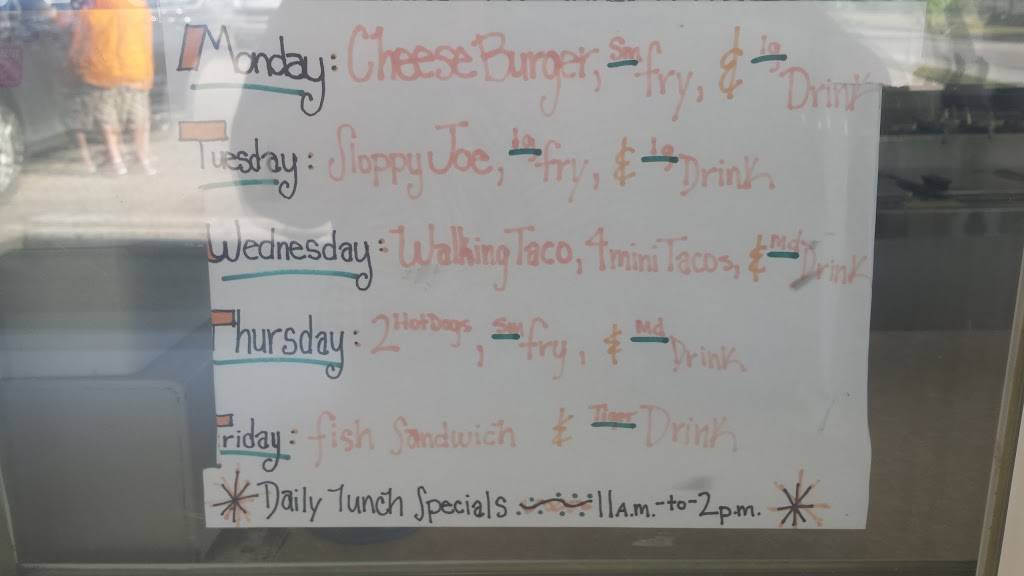 Monday: Cheese Burger, Sm fry, & lg Drink
Tuesday: Sloppy Joe, lg fry, & lg Drink
Wednesday: Walking Taco, 4 mini Tacos, & Md Drink
Thursday: 2 Hot Dogs, Sm fry, & Md Drink
Friday: fish Sandwich & Tiger Drink
Daily lunch Specials 11 A.M.-to-2 p.m.